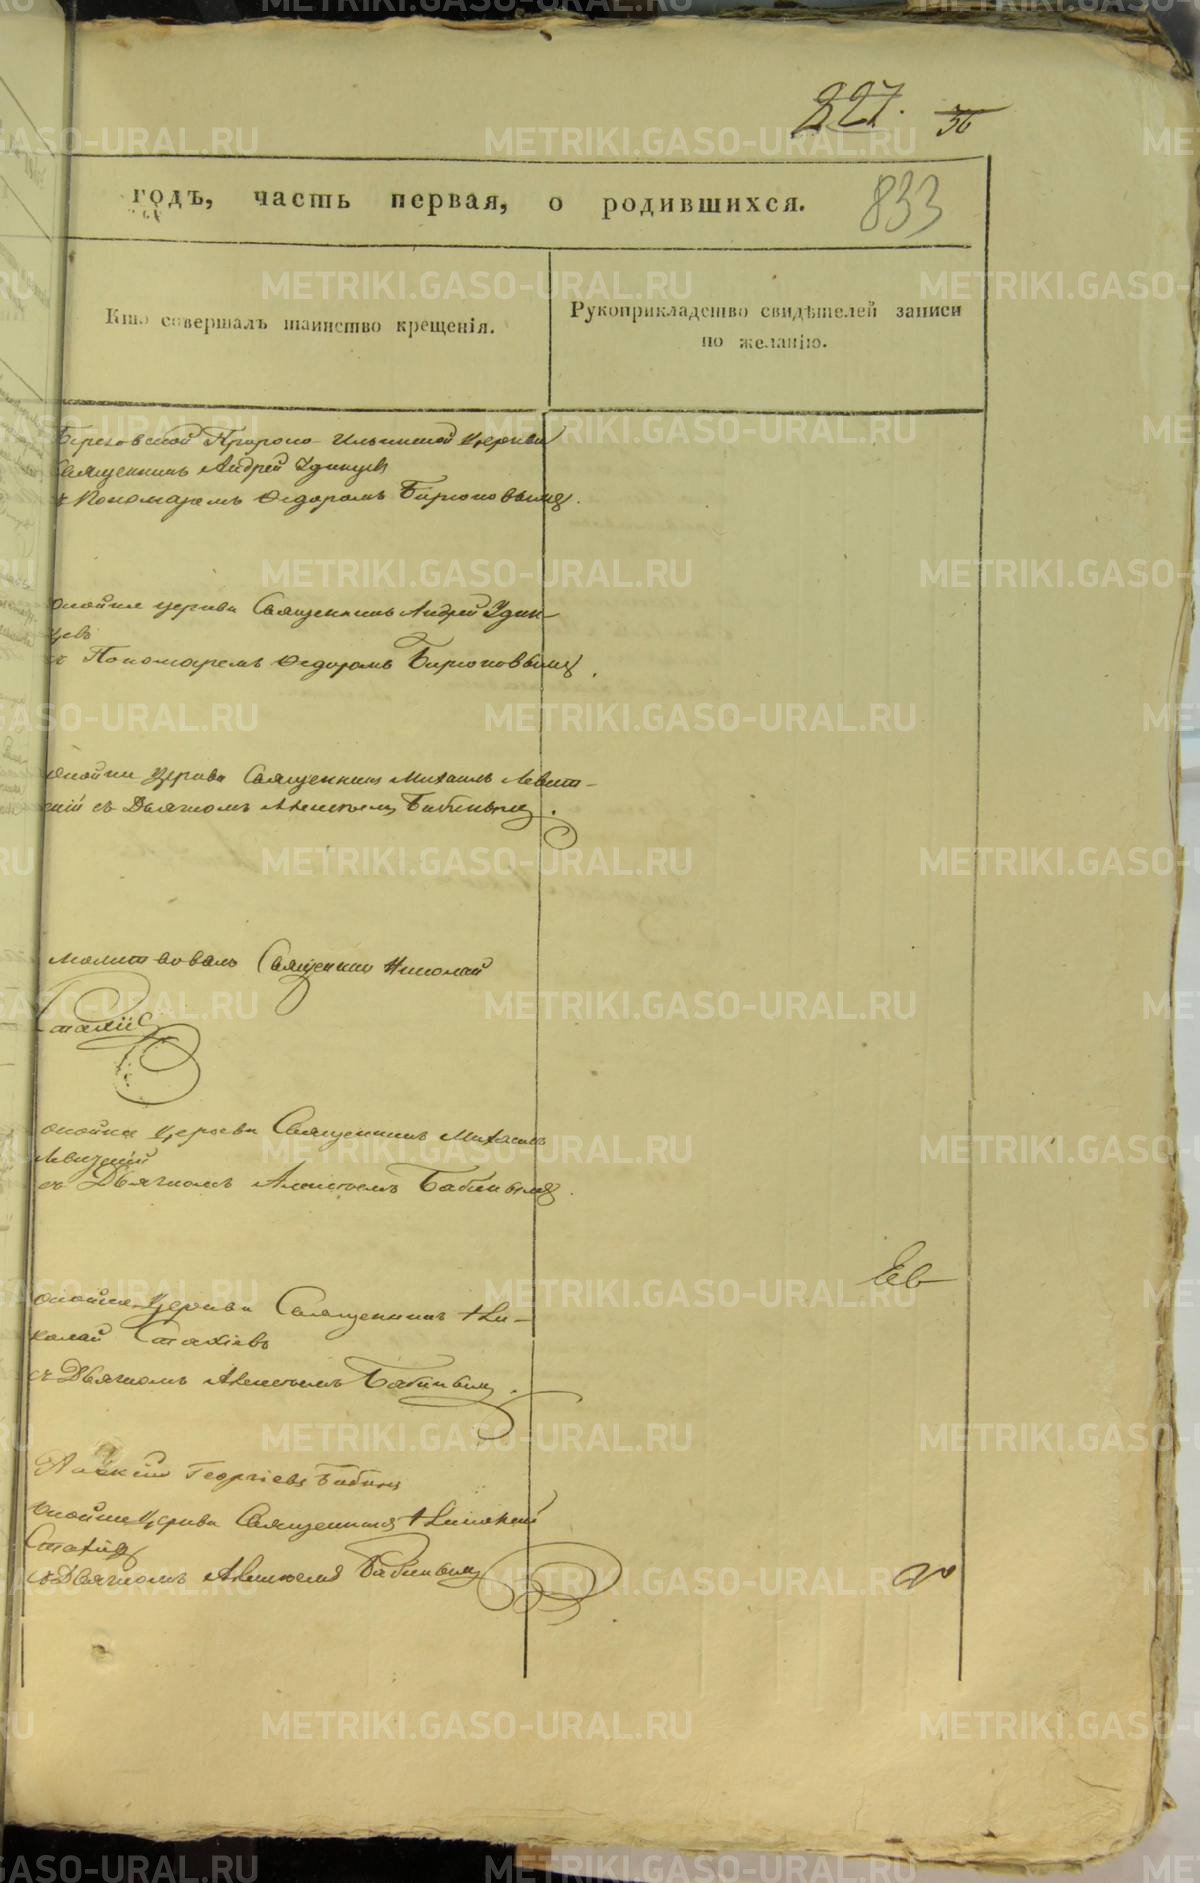 227. 36
годъ, часть первая, о родившихся. 833
Кто совершалъ таинство крещенія.
Рукоприкладство свидѣтелей записи
по желанію.
Березовской Пророко-Ильинской Церкви
Священникъ Андрей Удинцев
съ Пономаремъ Ѳедоромъ Бирюковымъ.
оной же церкви Священникъ Андрей Удин-
цевъ
съ Пономаремъ Ѳедоромъ Бирюковымъ.
оной же Церкви Священникъ Михаилъ Левит-
скій съ Дьячкомъ Алексѣемъ Бабинымъ.
молитвовалъ Священник Николай
Стахіев
оной же Церкви Священникъ Михаилъ
Левицкій
съ Дьячкомъ Алексѣемъ Бабинымъ.
оной же Церкви Священникъ Ни-
колай Стахіевъ
съ Дьячкомъ Алексѣемъ Бабинымъ.
Георгіевъ Бабинъ
оной же Церкви Священникъ Николай
Стахіев
съ Дьячкомъ Алексѣемъ Бабинымъ
METRIKI.GASO-URAL.RU